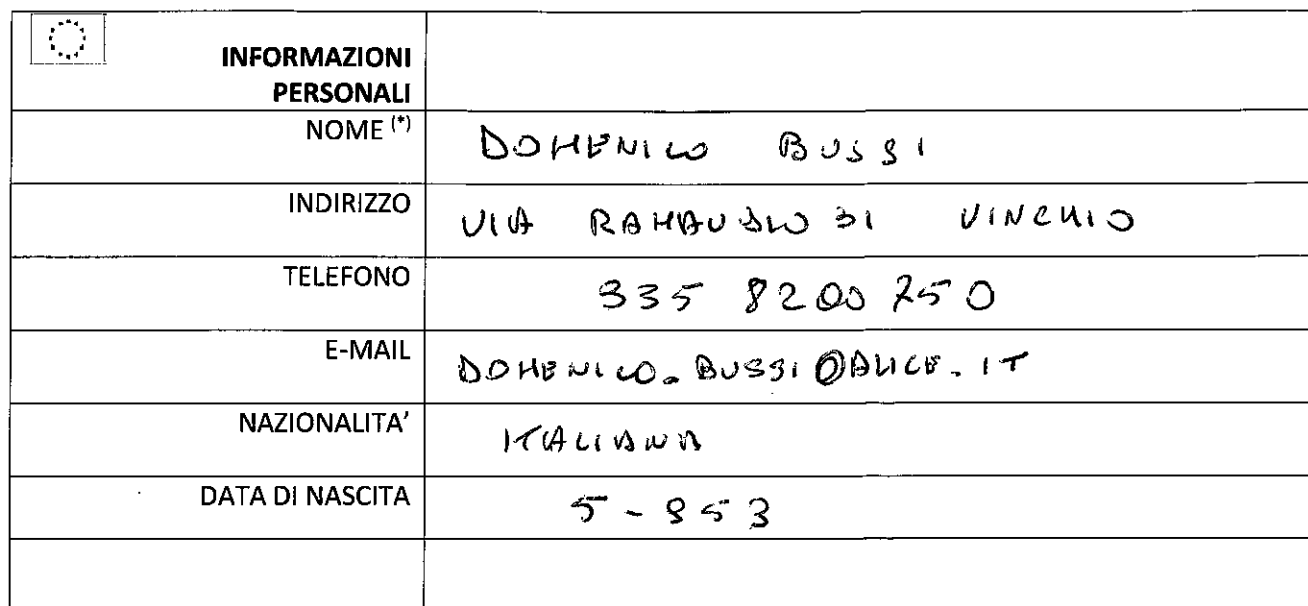 INFORMAZIONI
PERSONALI
NOME (*) DOMENICO BUSSI
INDIRIZZO VIA 31 VINCHIO
TELEFONO 335 8200 250
E-MAIL DOMENICO.BUSSI@ALICE.IT
NAZIONALITA' ITALIANA
DATA DI NASCITA 5-853